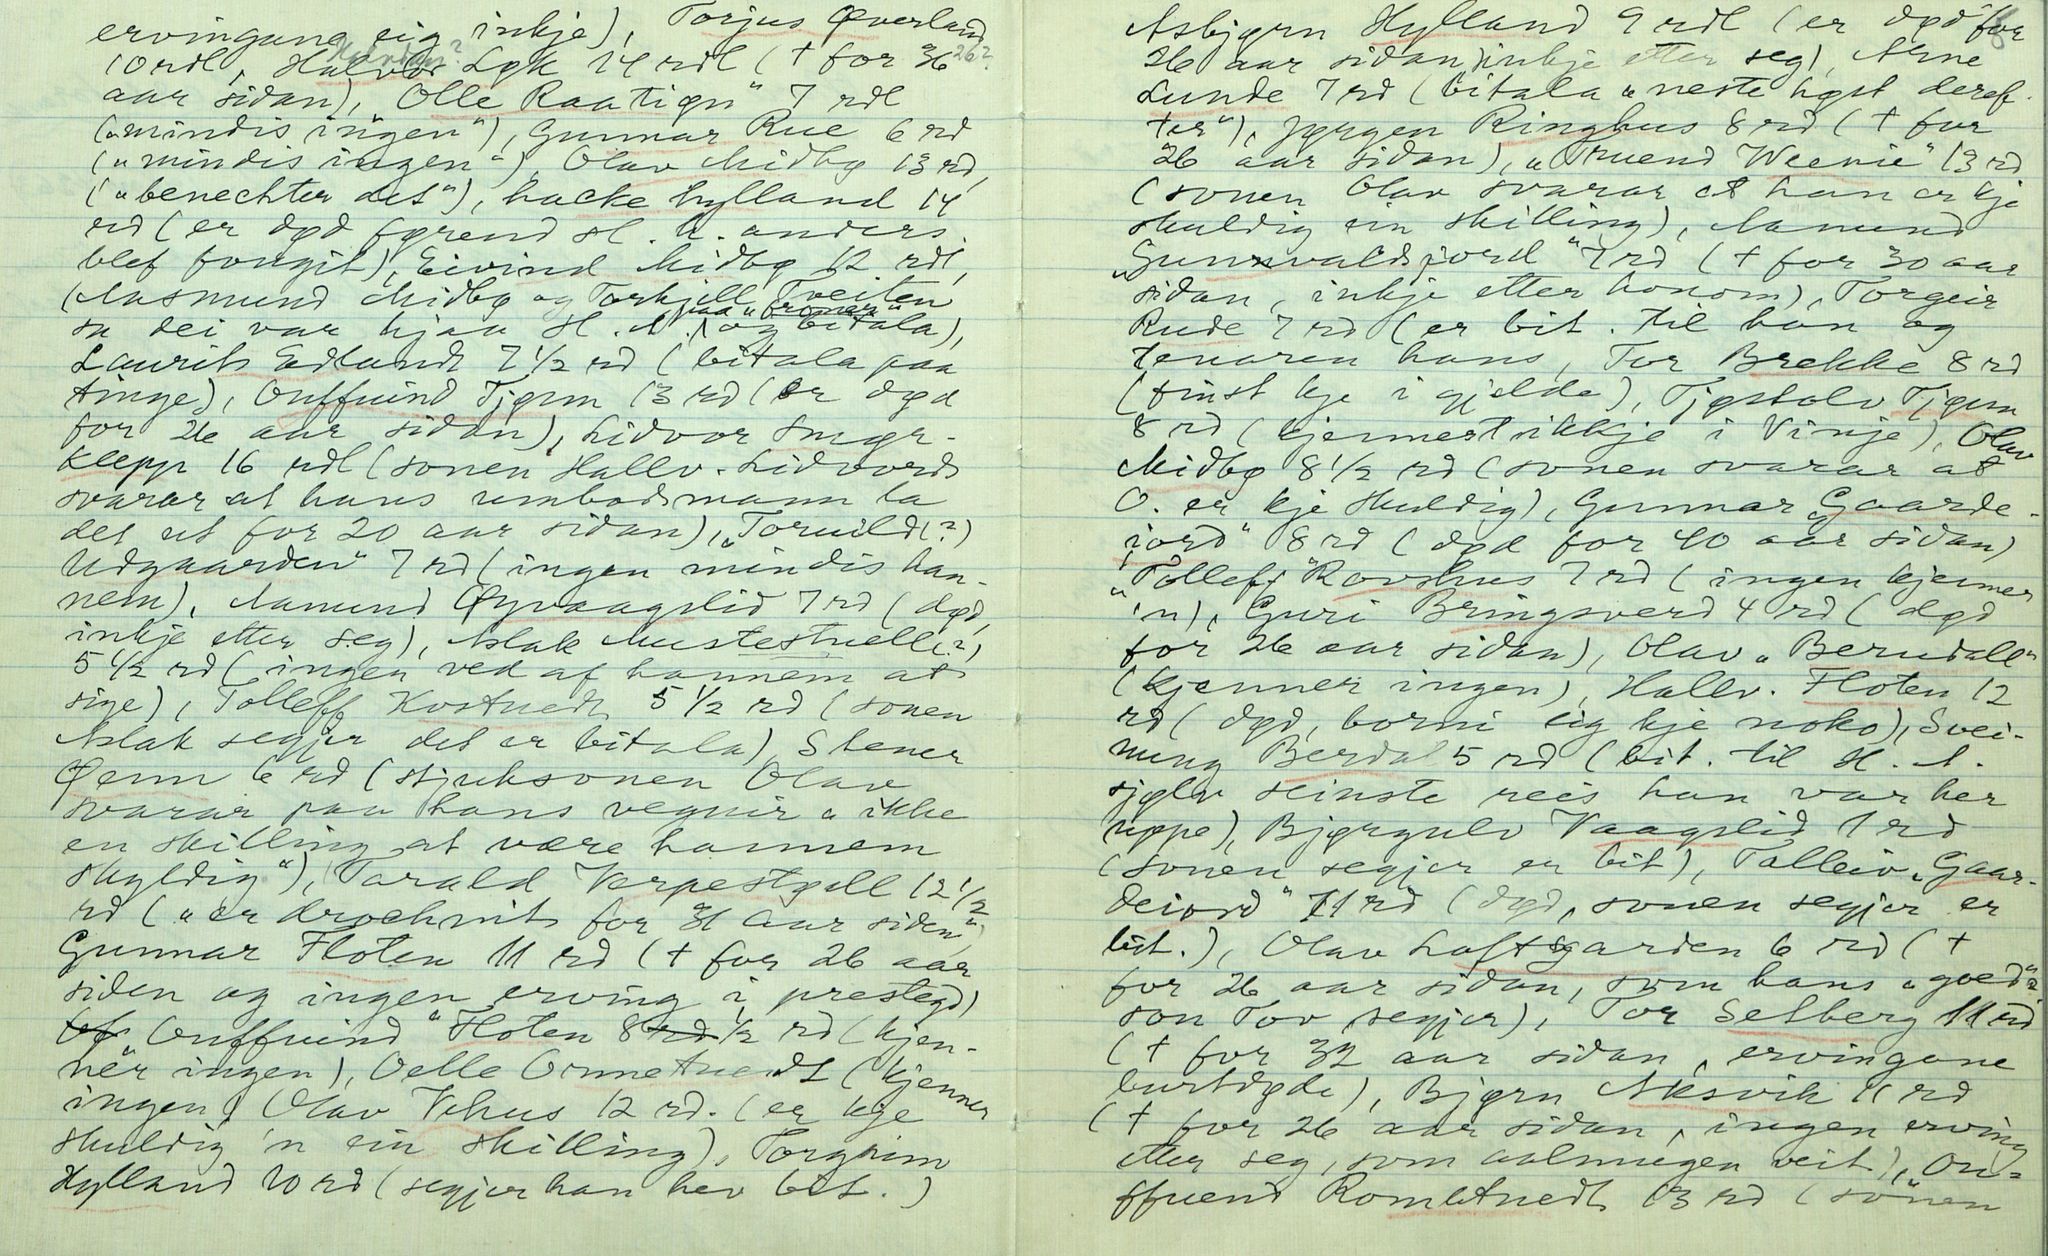 ervingane eig inkje), Torjus Øverland
10 rdl, Halvor Løk 14 rdl († for 36 26?
aar sidan), Olle Raatign" 7 rdl
(„mindis ingen"), Gunnar Rue 6 rd
(„mindis ingen"), Olav Midbø 13 rd,
(„benechter det"), hacke hylland 14
rd (er død førend H. A. anders.
blef fongit), Eivind Midbø 12 rdl,
(Aasmund Midbø og Torkjill Tveiten
sa dei var hjaa H. A. paa „Bromen" og bitala),
Laurits Edland 7 1/2 rd (bitala paa
tinge), Onffuind Tjønn 13 rd (er død
for 26 aar sidan), Lidvor Smør-
klepp 16 rdl (sonen Hallv. Lidvords
svarar at hans umbodsmann la
det ut for 20 aar sidan), „Toruild(?)
Udgaarden" 7 rd (ingen mindis han-
nem), Aamund Øyvaagslid 7 rd (død,
inkje etter seg), Aslak Mustestuell(?)
5 1/2 rd (ingen ved af hannem at
sige), Tolleff Kostuedt 5 1/2 rd (sonen
Aslak segjer det er bitala), Stener
Øenn 6 rd (stjuksonen Olav
svarar paa hans vegnir „ikke
en skilling at være hannem
skyldig"), Tarald Verpestøill 12 1/2
rd („er drochnit for 31 aar siden"),
Gunnar Floten 11 rd († for 26 aar
siden og ingen erving i prestegd)
„Onffuind" Floten 8 rd 1/2 rd (kjen-
ner ingen), Oelle Ormetuedt (kjenner
ingen) Olav Vehus 12 rd. (er kje
skuldig 'n ein skilling), Torgrim
Hylland 10 rd (segjer han hev bit.)
Asbjørn Hylland 9 rdl (er død for
26 aar sidan, inkje etter seg), Arne
Lunde 7 rd (bitala „neste høst deref-
ter"), Jørgen Ringhus 8 rd († for
26 aar sidan), „Truend Weenie" 13 rd
(sonen Olav svarar at han er kje
skuldig ein skilling), Aamund
„Gunnvaldsjord" 7 rd († for 30 aar
sidan, inkje etter honom), Torgeir
Rude 7 rd (er bit. til han og
tenaren hans, Tor Brekke 8 rd
(finst kje i gjelde), Tjøstolv Tjønn
8 rd (kjennest ikkje i Vinje), Olav
Midbø 8 1/2 rd (sonen svarar at
O. er kje skuldig), Gunnar „Gaarde-
iord" 8 rd (død for 40 aar sidan)
„Tolleff" Rovshus 7 rd (ingen kjenner
'n), Guri Bringsverd 4 rd (død
for 26 aar sidan), Olav „Berudall"
(kjenner ingen), Hallv. Floten 12
rd (død, borni eig kje noko), Svei-
nung Berdal 5 rd (bit. til H. A.
sjølv seinste reis han var her
uppe), Bjørgulv Vaagslid 7 rd
(sonen segjer er bit), Talleiv „Gaar-
deiord" 11 rd (død, sonen segjer er
bit.), Olav Loftsgarden 6 rd (†
for 26 aar sidan, som hans „goed"
son Tov segjer), Tor Selberg 11 rd
(† for 32 aar sidan, ervingane
burtdøde), Bjørn Aksvik 11 rd
(† for 26 aar sidan, ingen erving
etter seg, som aalmugen veit), On-
ffuend Romletuedt 13 rd (sonen